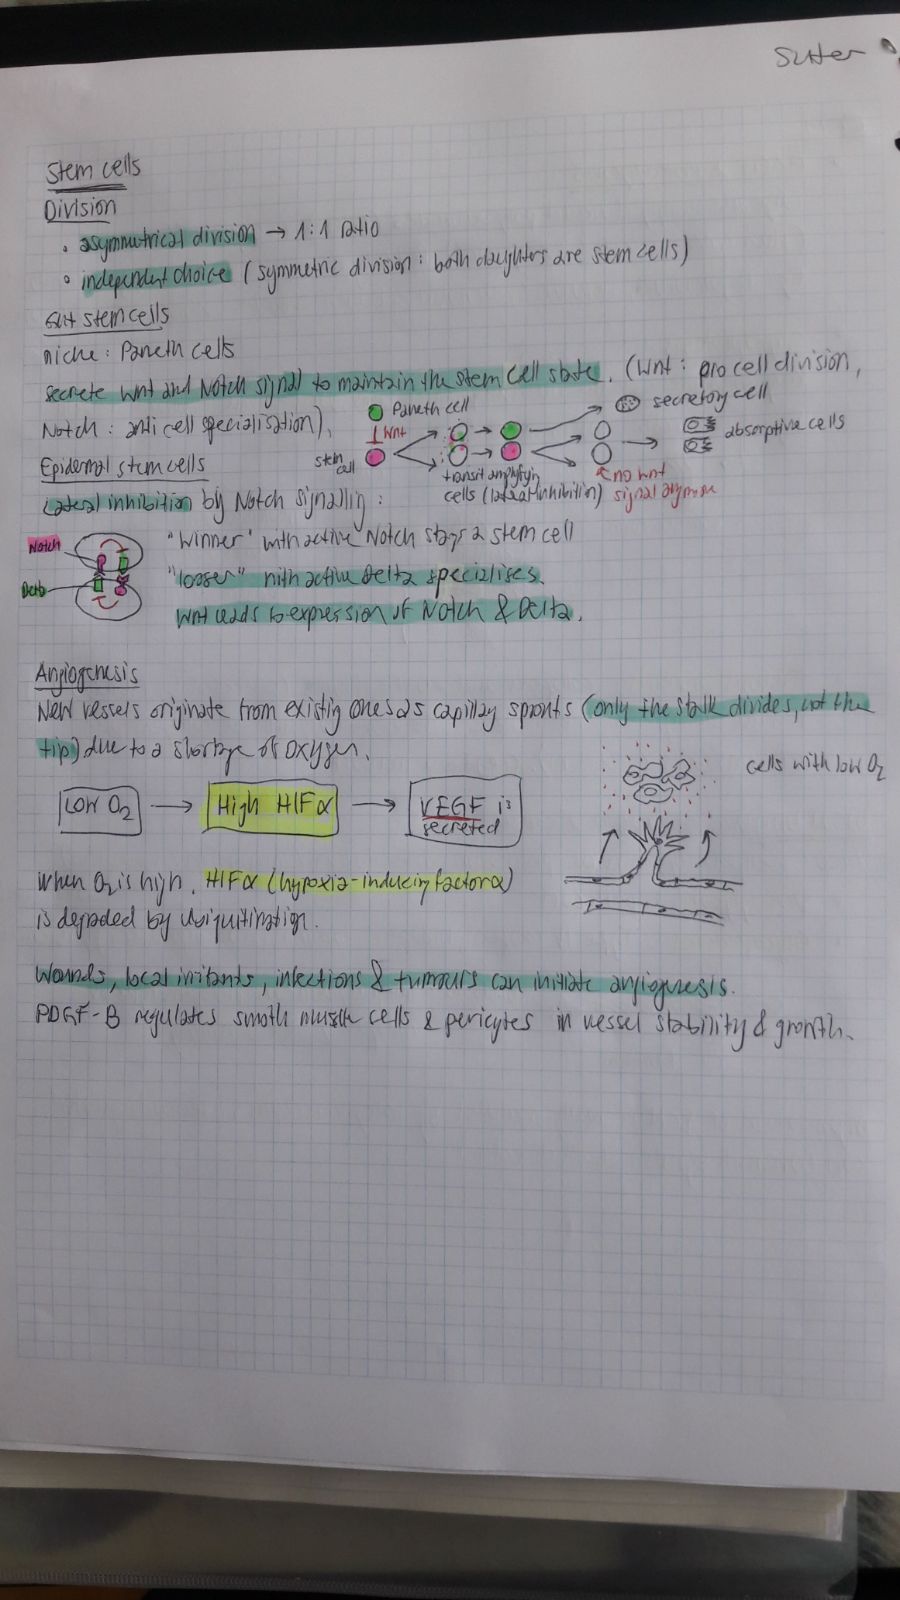 Sutter
Stem cells
Division
• asymmetrical division → 1:1 ratio
• independent choice (symmetric division: both daughters are stem cells)
Gut stem cells
niche: Paneth cells
secrete Wnt and Notch signal to maintain the stem cell state. (Wnt: pro cell division,
Notch: anti cell specialisation).
Paneth cell
Wnt
stem cell
transit amplifying
cells (lateral inhibition)
secretory cell
absorptive cells
no wnt
signal anymore
Epidermal stem cells
Lateral inhibition by Notch signalling:
Notch
Delta
"Winner" with active Notch stays a stem cell
"looser" with active Delta specialises.
Wnt leads to expression of Notch & Delta.
Angiogenesis
New vessels originate from existing ones as capillay sprouts (only the stalk divides, not the
tip) due to a shortage of oxygen.
Low O2 → High HIFα → VEGF is
secreted
cells with low O2
when O2 is high, HIFα (hypoxia-inducing factor α)
is degraded by ubiquitination.
Wounds, local irritants, infections & tumours can initiate angiogenesis.
PDGF-B regulates smoth muscle cells & pericytes in vessel stability & growth.